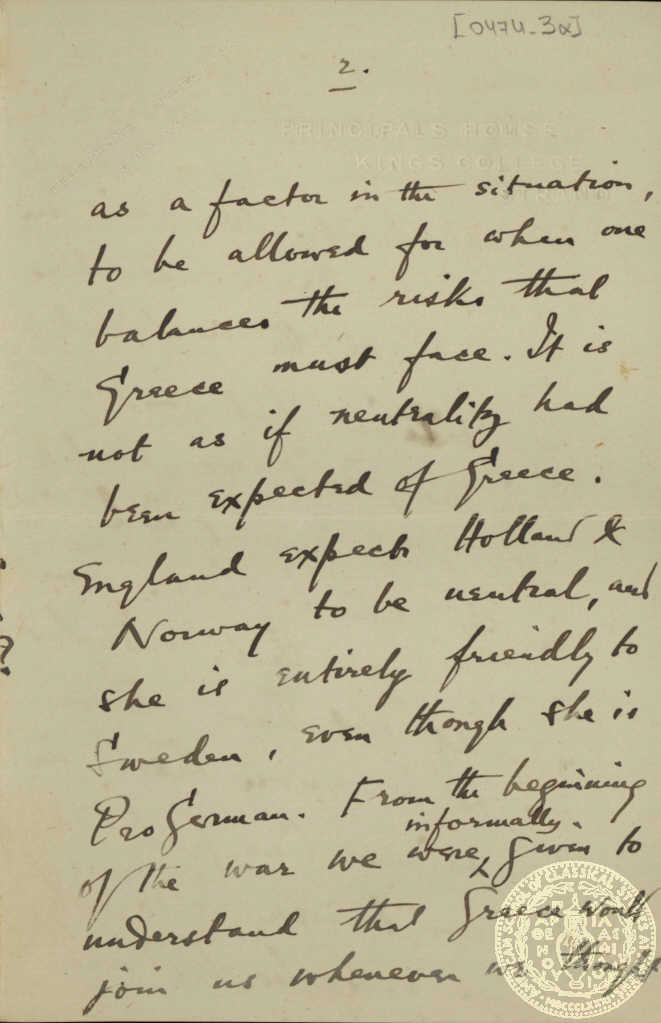 [0474-3α]
2.
PRINCIPALS HOUSE
KINGS COLLEGE
as a factor in the situation,
to be allowed for when one
balances the risks that
Greece must face. It is
not as if neutrality had
been expected of Greece.
England expects Holland &
Norway to be neutral, and
she is entirely friendly to
Sweden, even though she is
Pro German. From the beginning
informally.
of the war we were, given to
understand that Greece would
join us whenever we thought